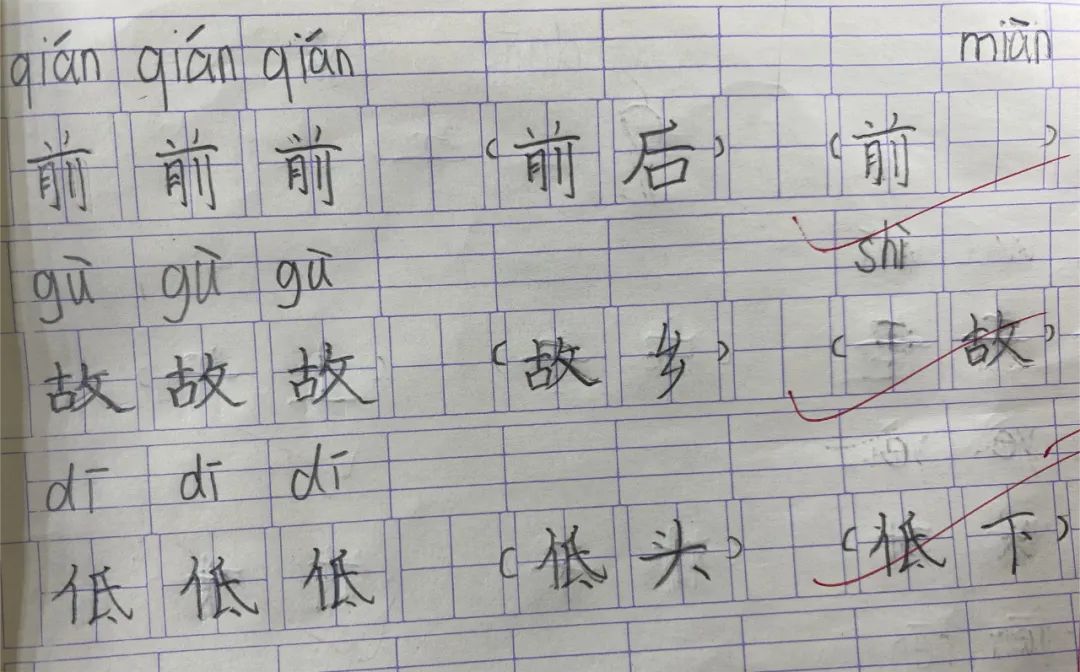 qián qián qián miàn
前 前 前 (前 后) (前 )
gù gù gù shì
故 故 故 (故 乡) ( 故)
dī dī dī
低 低 低 (低 头) (低 下)